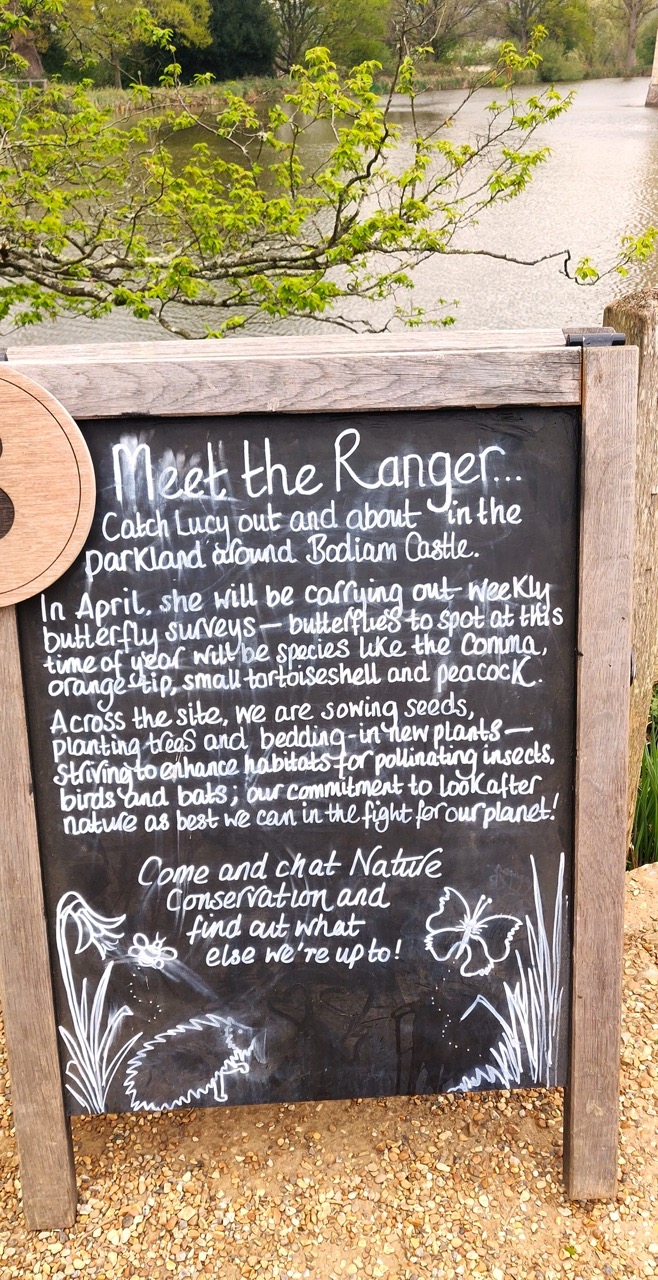 Meet the Ranger...
Catch Lucy out and about in the
parkland around Bodiam Castle.
In April, she will be carrying out weekly
butterfly surveys – butterflies to spot at this
time of year will be species like the Comma,
orange-tip, small tortoiseshell and peacock.
Across the site, we are sowing seeds,
planting trees and bedding-in new plants –
striving to enhance habitats for pollinating insects,
birds and bats; our commitment to look after
nature as best we can in the fight for our planet!
Come and chat Nature
Conservation and
find out what
else we're up to!